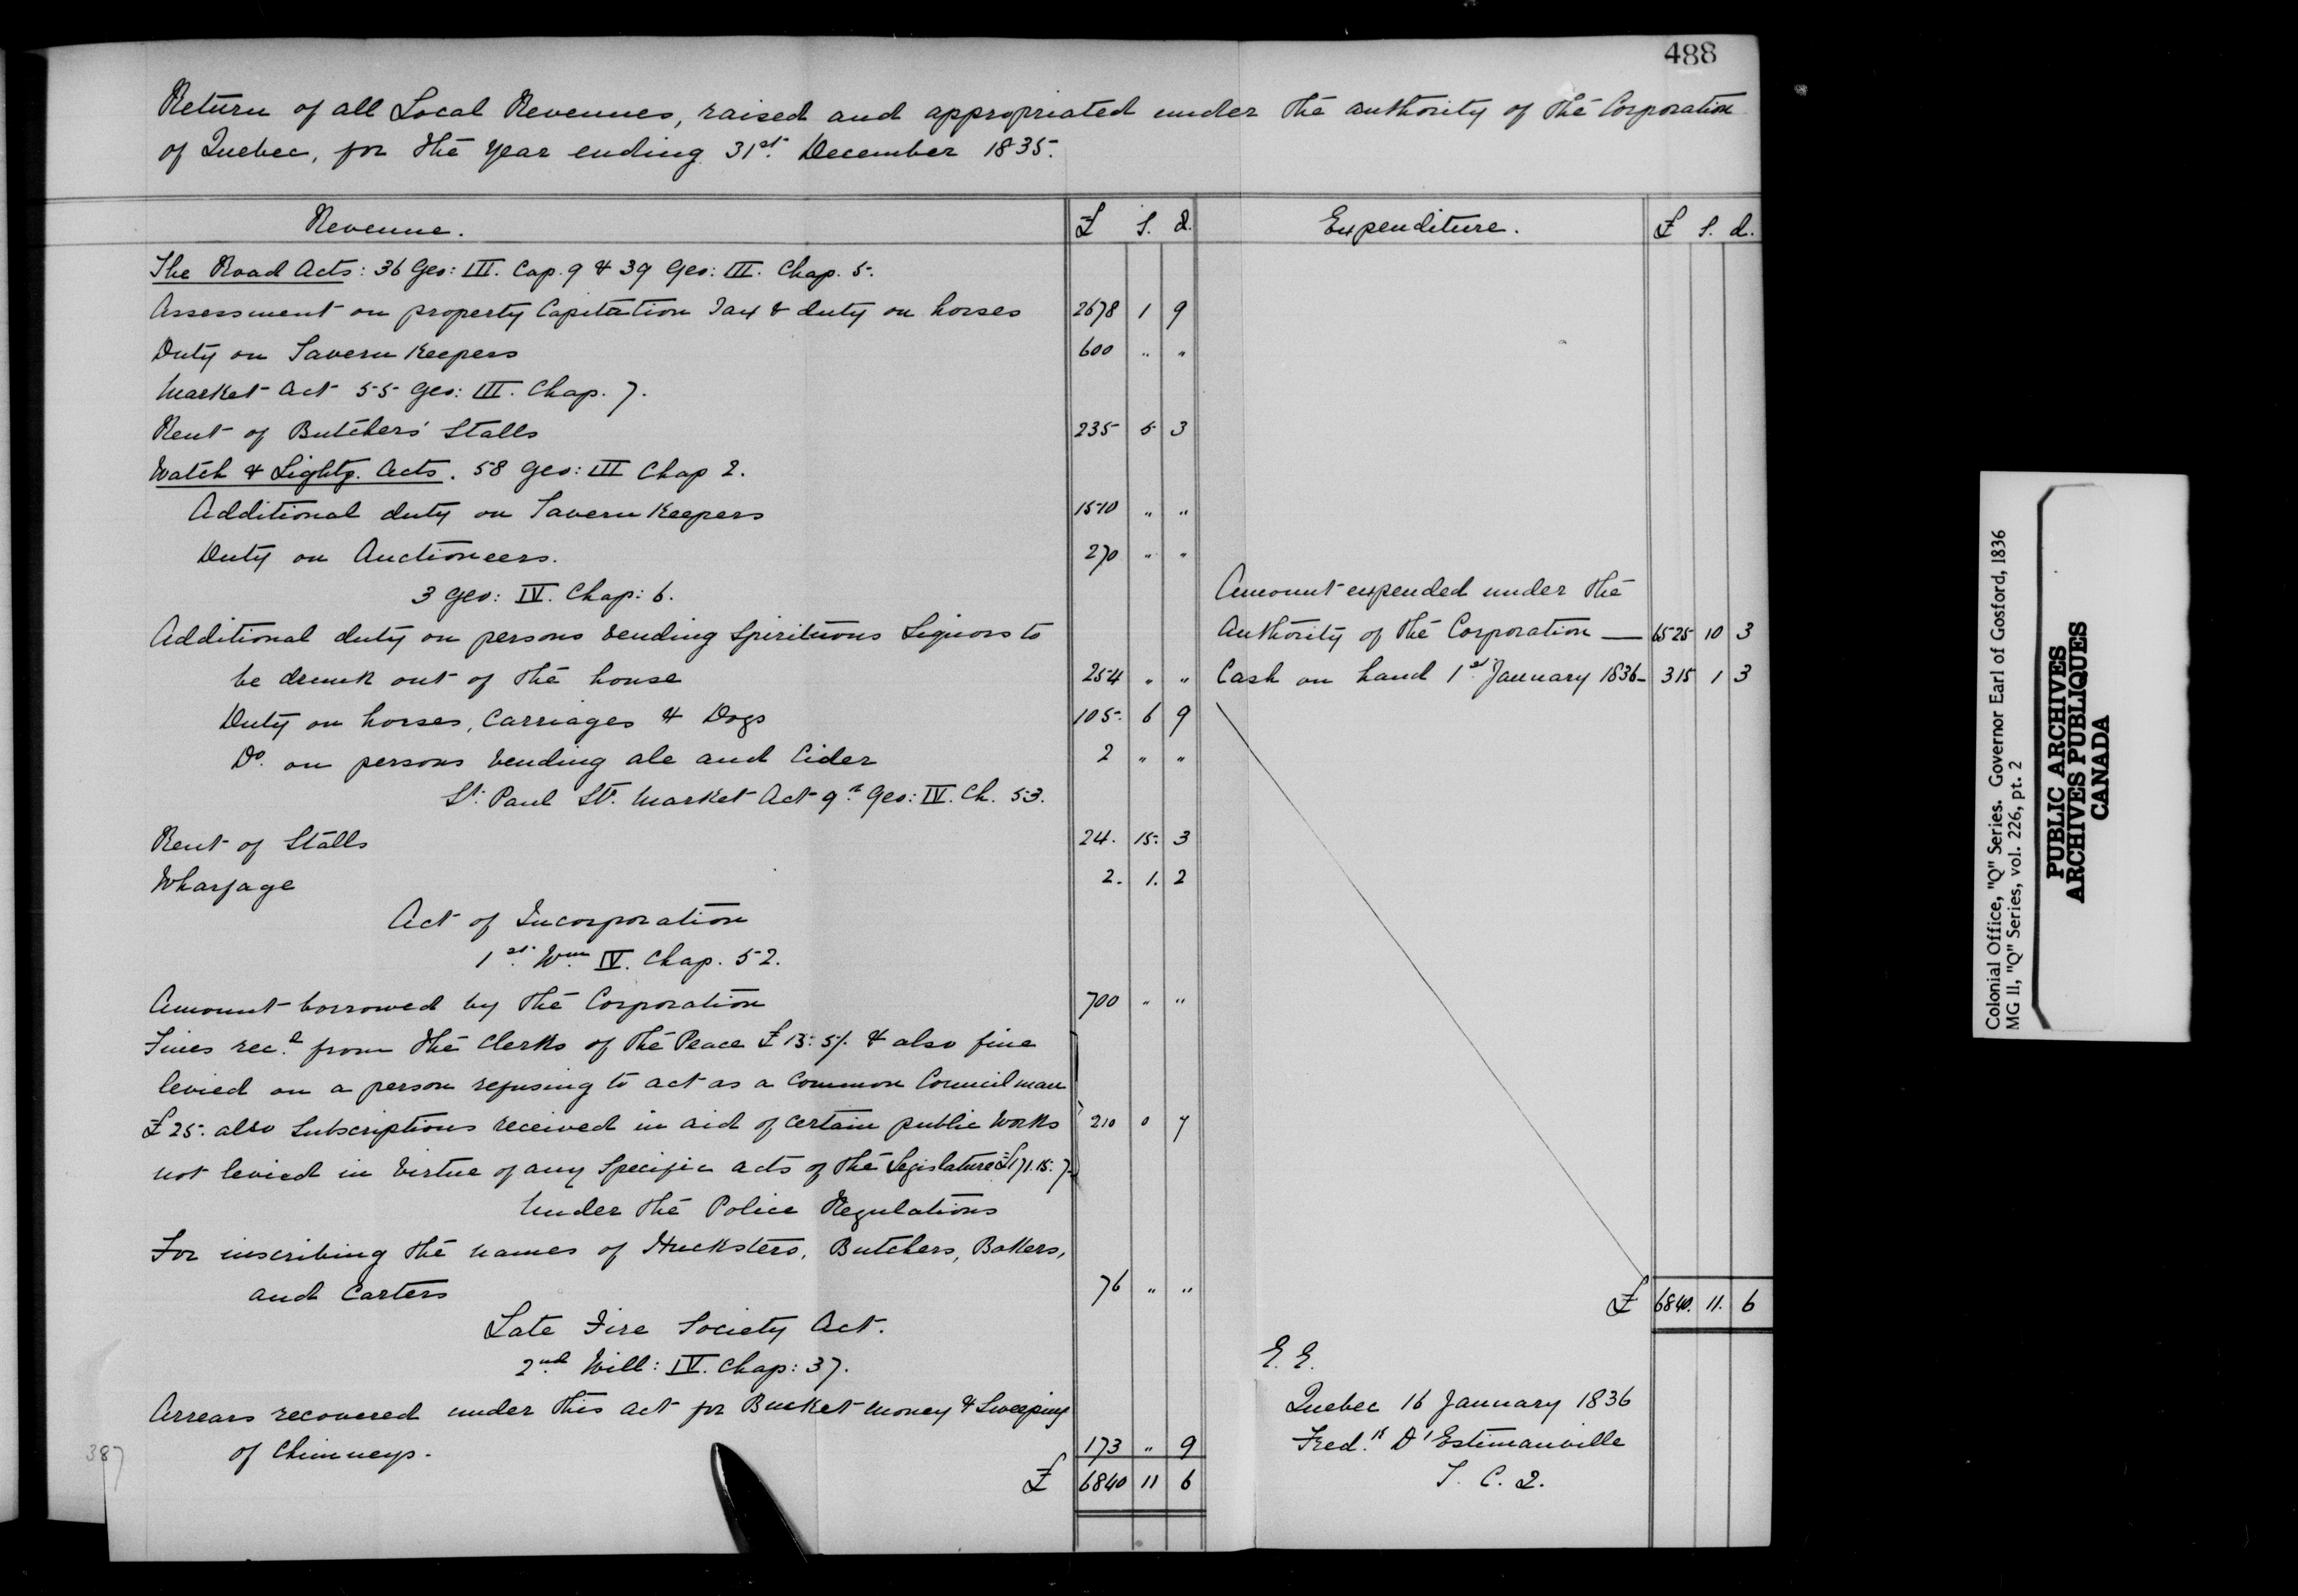 488
Return of all Local Revenues, raised and appropriated under the authority of the Corporation
of Quebec, for the year ending 31st. December 1835.
Revenue. £ S. d. Expenditure. £ S. d.
The Road Acts: 36 Geo: III. Cap. 9 & 39 Geo: III. Chap. 5.
Assessment on property Capitation Tax & duty on horses 2678 1 9
Duty on Tavern Keepers 600 " "
Market Act 55 Geo: III. Chap. 7.
Rent of Butchers' Stalls 235 5 3
Watch & Lightg. Acts. 58 Geo: III Chap 2.
Additional duty on Tavern Keepers 1510 " "
Duty on Auctioneers. 270 " "
3 Geo: IV. Chap: 6. Amount expended under the
Additional duty on persons vending Spirituous Liquors to Authority of the Corporation — 6525 10 3
be drunk out of the house 254 " " Cash on hand 1st January 1836 – 315 1 3
Duty on horses, Carriages & Dogs 105. 6 9
Do. on persons vending ale and Cider 2 " "
St. Paul St. Market Act 9th Geo: IV. Ch. 53.
Rent of Stalls 24. 15. 3
Wharfage 2. 1. 2
Act of Incorporation
1st. Wm IV. Chap. 52.
Amount borrowed by the Corporation 700 " "
Fines recd. from the Clerks of the Peace £13: 5/. & also fine
levied on a person refusing to act as a Common Councilman
£25. also Subscriptions received in aid of certain public Works 210 0 7
not levied in virtue of any Specific acts of the Legislature £171. 15: 7
Under the Police Regulations
For inscribing the names of Hucksters, Butchers, Bakers,
and Carters 76 " " £ 6840. 11. 6
Late Fire Society Act.
2nd Will: IV. Chap: 37. E. E.
Arrears recovered under this act for Bucket money & Sweeping Quebec 16 January 1836
of Chimneys. 173 " 9 Fred.k D'Estimauville
£ 6840 11 6 T. C. Q.
387
Colonial Office, "Q" Series. Governor Earl of Gosford, 1836
MG 11, "Q" Series, vol. 226, pt. 2
PUBLIC ARCHIVES
ARCHIVES PUBLIQUES
CANADA